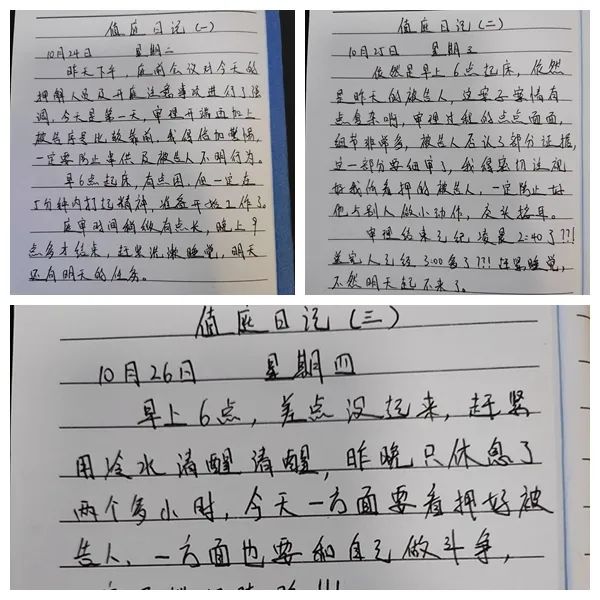 值庭日记(一)
10月24日 星期二
昨天下午,庭前会议对今天的
押解人员及开庭注意事项进行了强
调,今天是第一天,审理开端而加上
被告席是比较靠前,我得倍加警惕,
一定要防止串供及被告人不明行为。
早6点起床,有点困,但一定在
5分钟内打起精神,准备开始工作了。
庭审时间稍微有点长,晚上9
点多才结束,赶紧洗漱睡觉,明天
还有明天的任务。
值庭日记(二)
10月25日 星期三
依然是早上6点起床,依然
是昨天的被告人,这案子案情有
点复杂啊,审理过程的点点面面,
细节非常多,被告人否认了部分证据,
这一部分要细审了,我得密切注视
好我的看押的被告人,一定防止好
他与别人做小动作,交头接耳。
审理结束已经凌晨2:40了??!
差完人已经3:00多了??!赶紧睡觉,
不然明天起不来了。
值庭日记(三)
10月26日 星期四
早上6点,差点没起来,赶紧
用冷水清醒清醒,昨晚只休息了
两个多小时,今天一方面要看押好被
告人,一方面也要和自己做斗争,